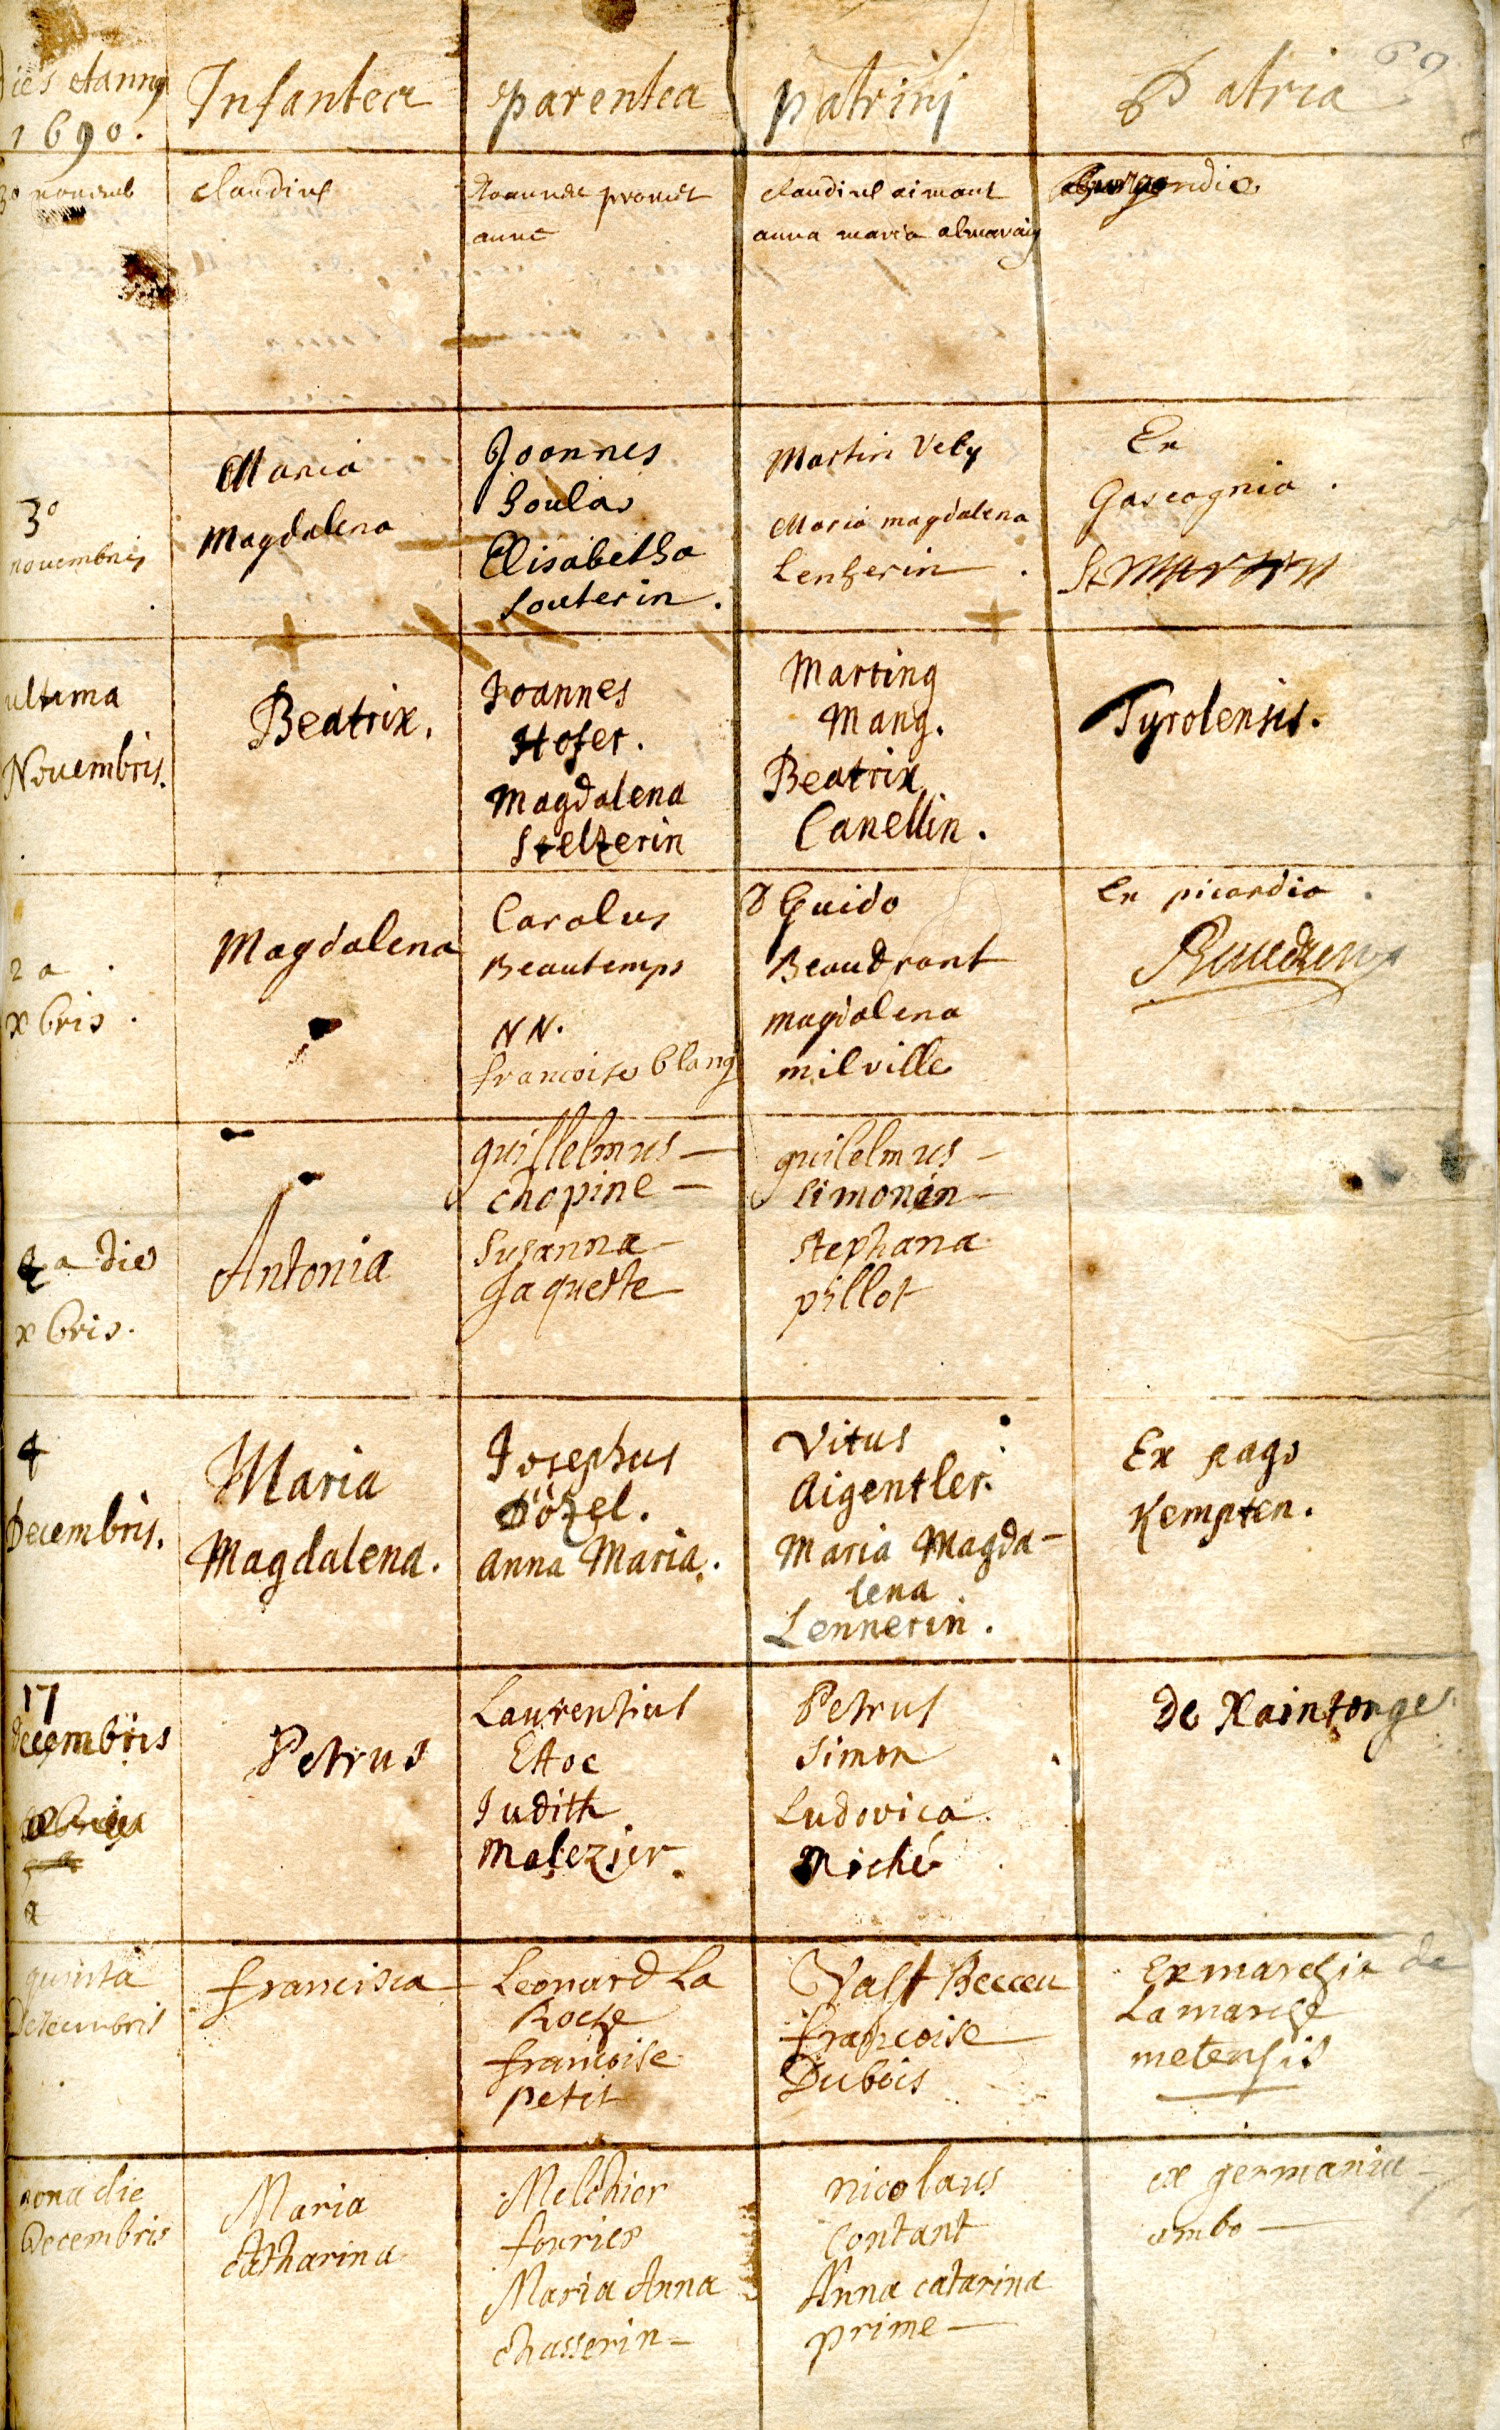 60
dies et annq Infantea parentea patrinj Patria
1690.
30 novemb claudius Joannes provict claudius aimont Burgondia
anne anna maria
Maria Joannes Martin Veby Ex
3° Magdalena Soulas Maria magdalena Gascognia.
novembris Elisabetha Lenherin.
Souterin.
ultima Beatrix. Joannes Marting Tyrolensis.
Novembris. Hofer. Mang.
Magdalena Beatrix
Stelzerin Canellin.
2a Magdalena Carolus D Guido Ex picardia
xbris. Beautemps Beaudrant
NN. magdalena
francoise blang milville
guillelmus guilelmus
chopine simonin
4a die Antonia Susanna stephana
xbris. Jaquette pillot
4 Maria Josephus Vitus Ex pago
Decembris. Magdalena. Dözel. Aigentler. Kempten.
Anna Maria. Maria Magda-
lena
Lennerin.
17 Petrus Laurentius Petrus De Xaintonges
decembris Ettoc Simon
Judith Ludovica
Malezier. Miché
quinta francisca Leonard La Valst Becceu Ex marchia de
Decembris Roche francoise La marche
francoise Dubois metensis
petit
nona die Maria Melchior nicolaus ex germania
Decembris catharina fourier contant ambo
Maria Anna Anna catarina
chasserin prime